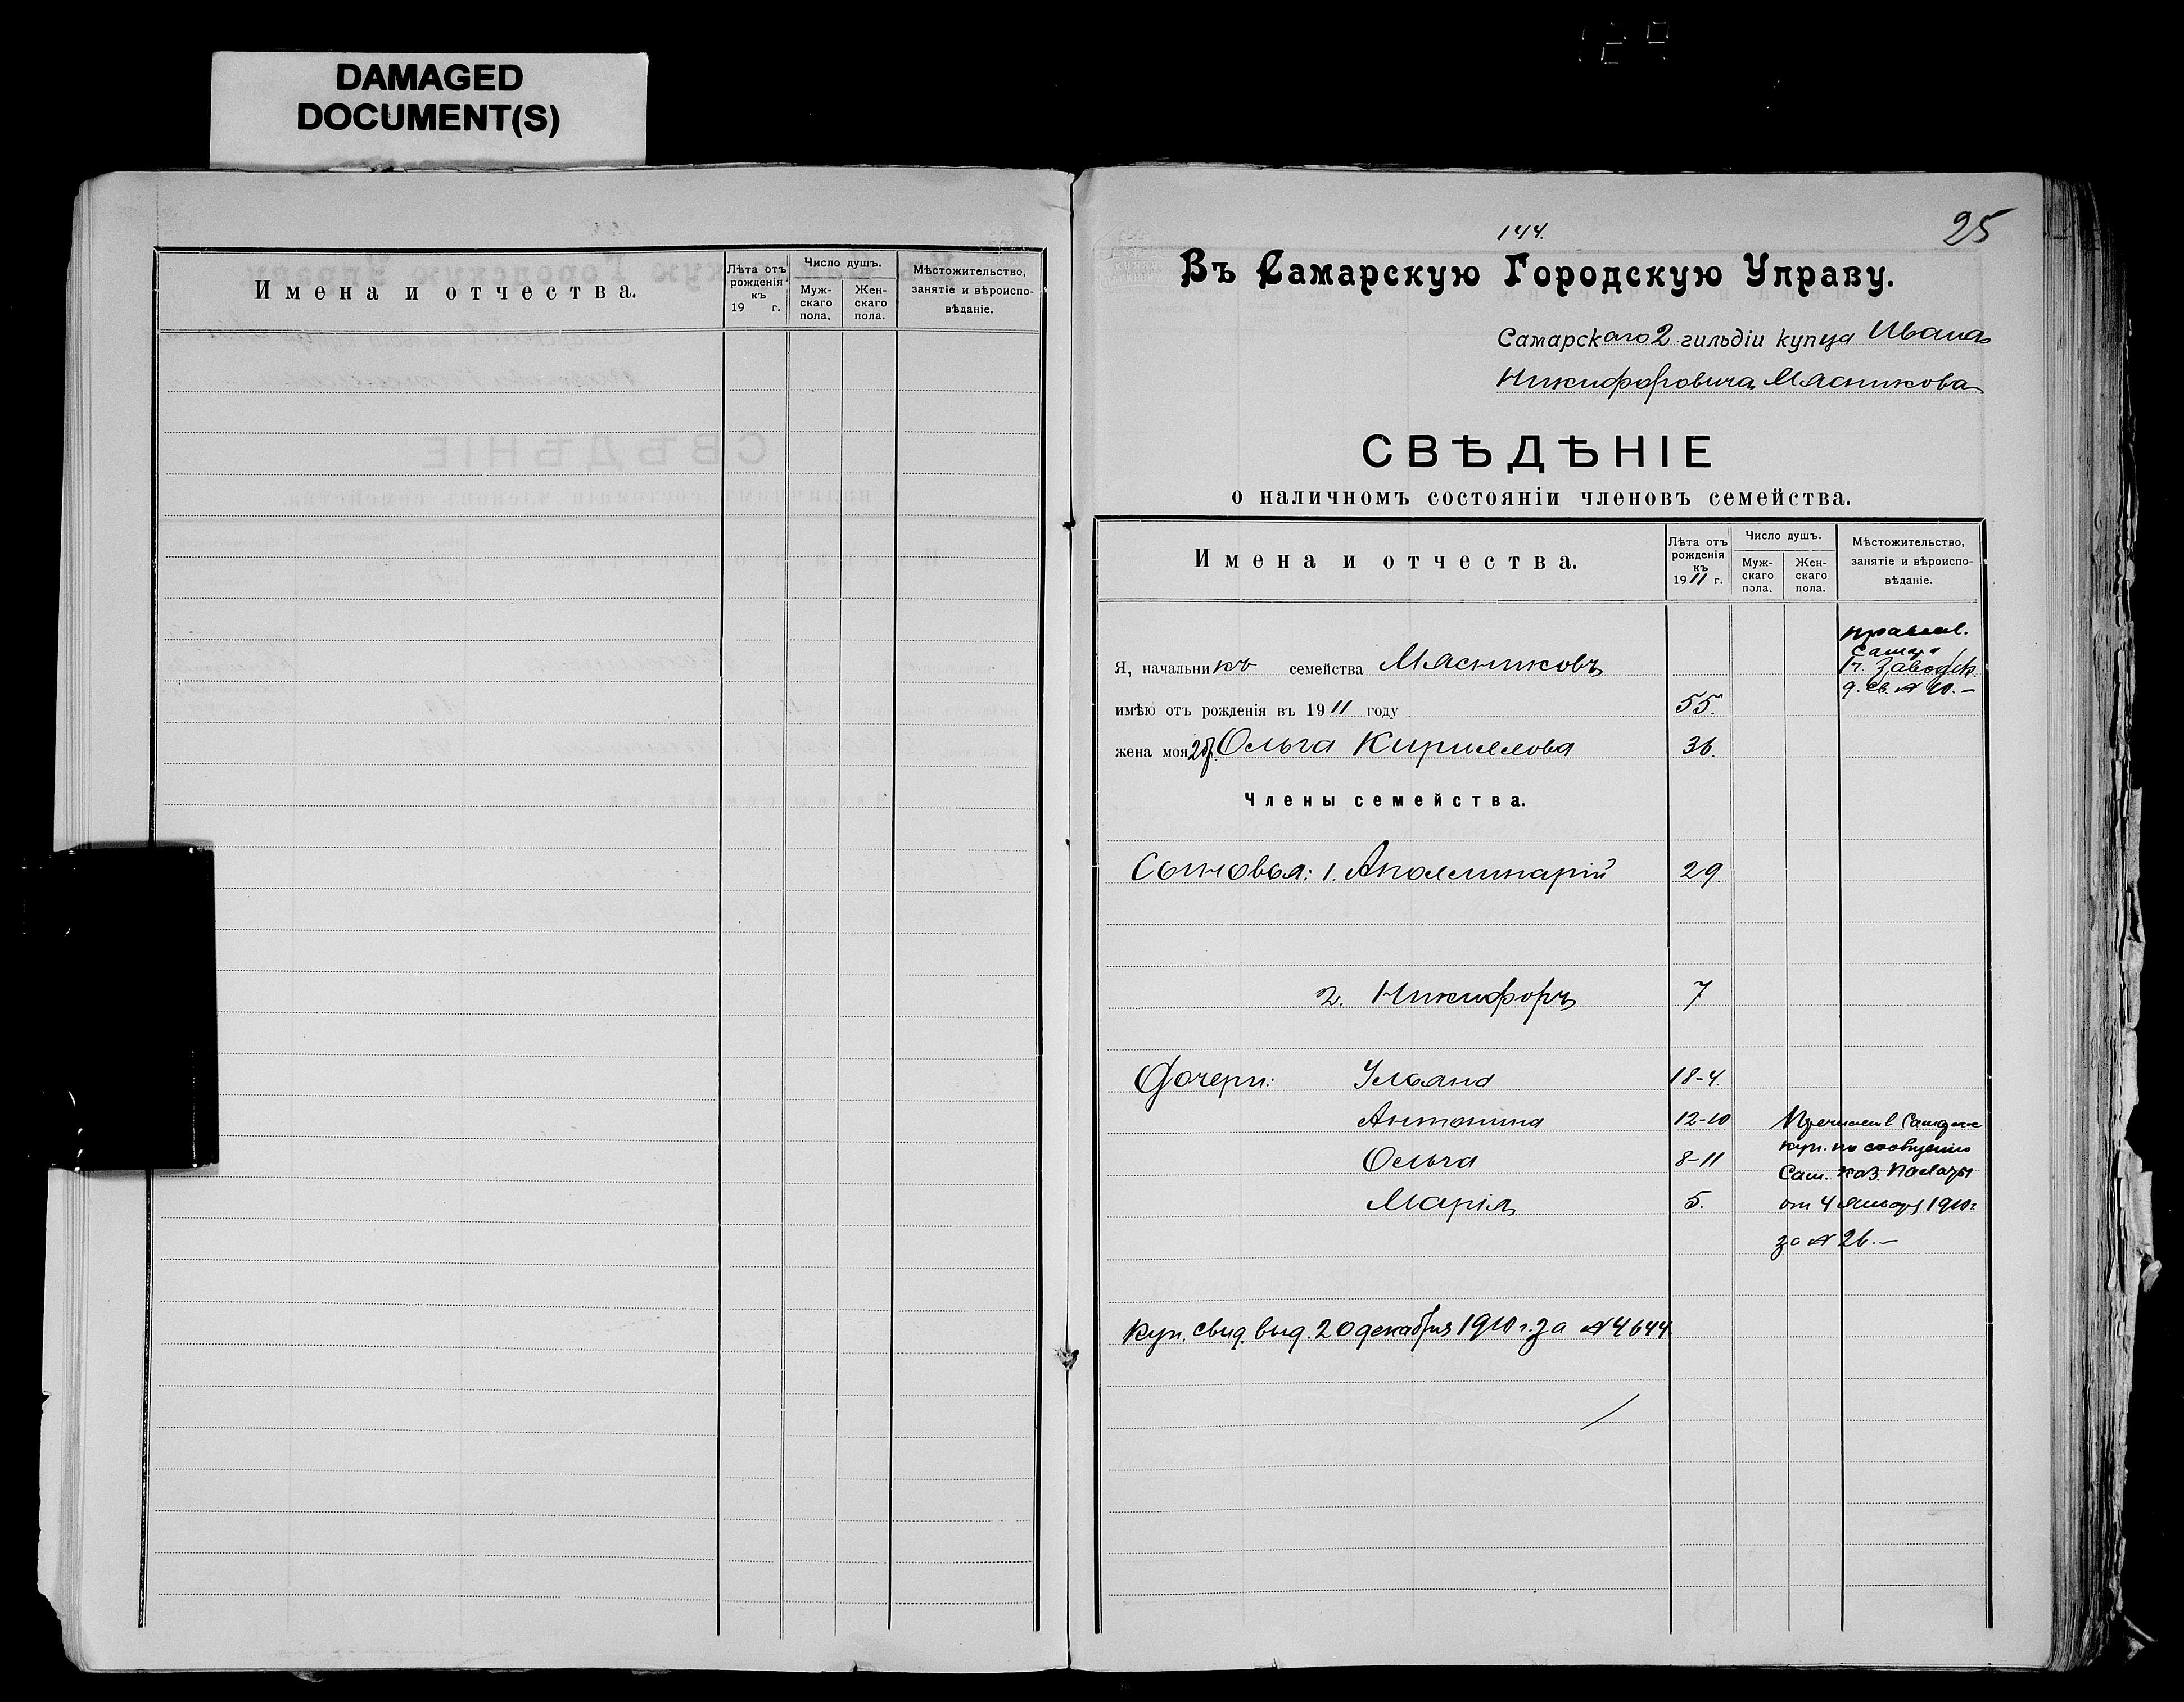 DAMAGED
DOCUMENT(S)
Имена и отчества.
Лѣта отъ рожденія къ 19 г.
Число душъ.
Муж-скаго пола.
Жен-скаго пола.
Мѣстожительство, занятіе и вѣроиспо-вѣданіе.
144.
25
Въ Самарскую Городскую Управу.
Самарскаго 2 гильдіи купца Ивана
Никифоровича Мясникова
СВѢДѢНІЕ
о наличномъ состояніи членовъ семейства.
Имена и отчества.
Лѣта отъ рожденія къ 1911 г.
Число душъ.
Муж-скаго пола.
Жен-скаго пола.
Мѣстожительство, занятіе и вѣроиспо-вѣданіе.
правосл.
Самара
Я, начальникъ семейства Мясниковъ
Заводск.
д. св. № 10.—
имѣю отъ рожденія въ 1911 году 55.
жена моя 2 бр. Ольга Кириллова 36.
Члены семейства.
Сыновья: 1. Аполлинарій 29
2. Никифоръ 7
Дочери: Ульяна 18-4.
Антонина 12-10
Причислен в Самарск
куп. по сообщению
Ольга 8-11
Сам. Каз. Палаты
Марія 5.
от 4 января 1910 г.
за № 26.—
Куп. свид. выд. 20 декабря 1910 г. за № 4644